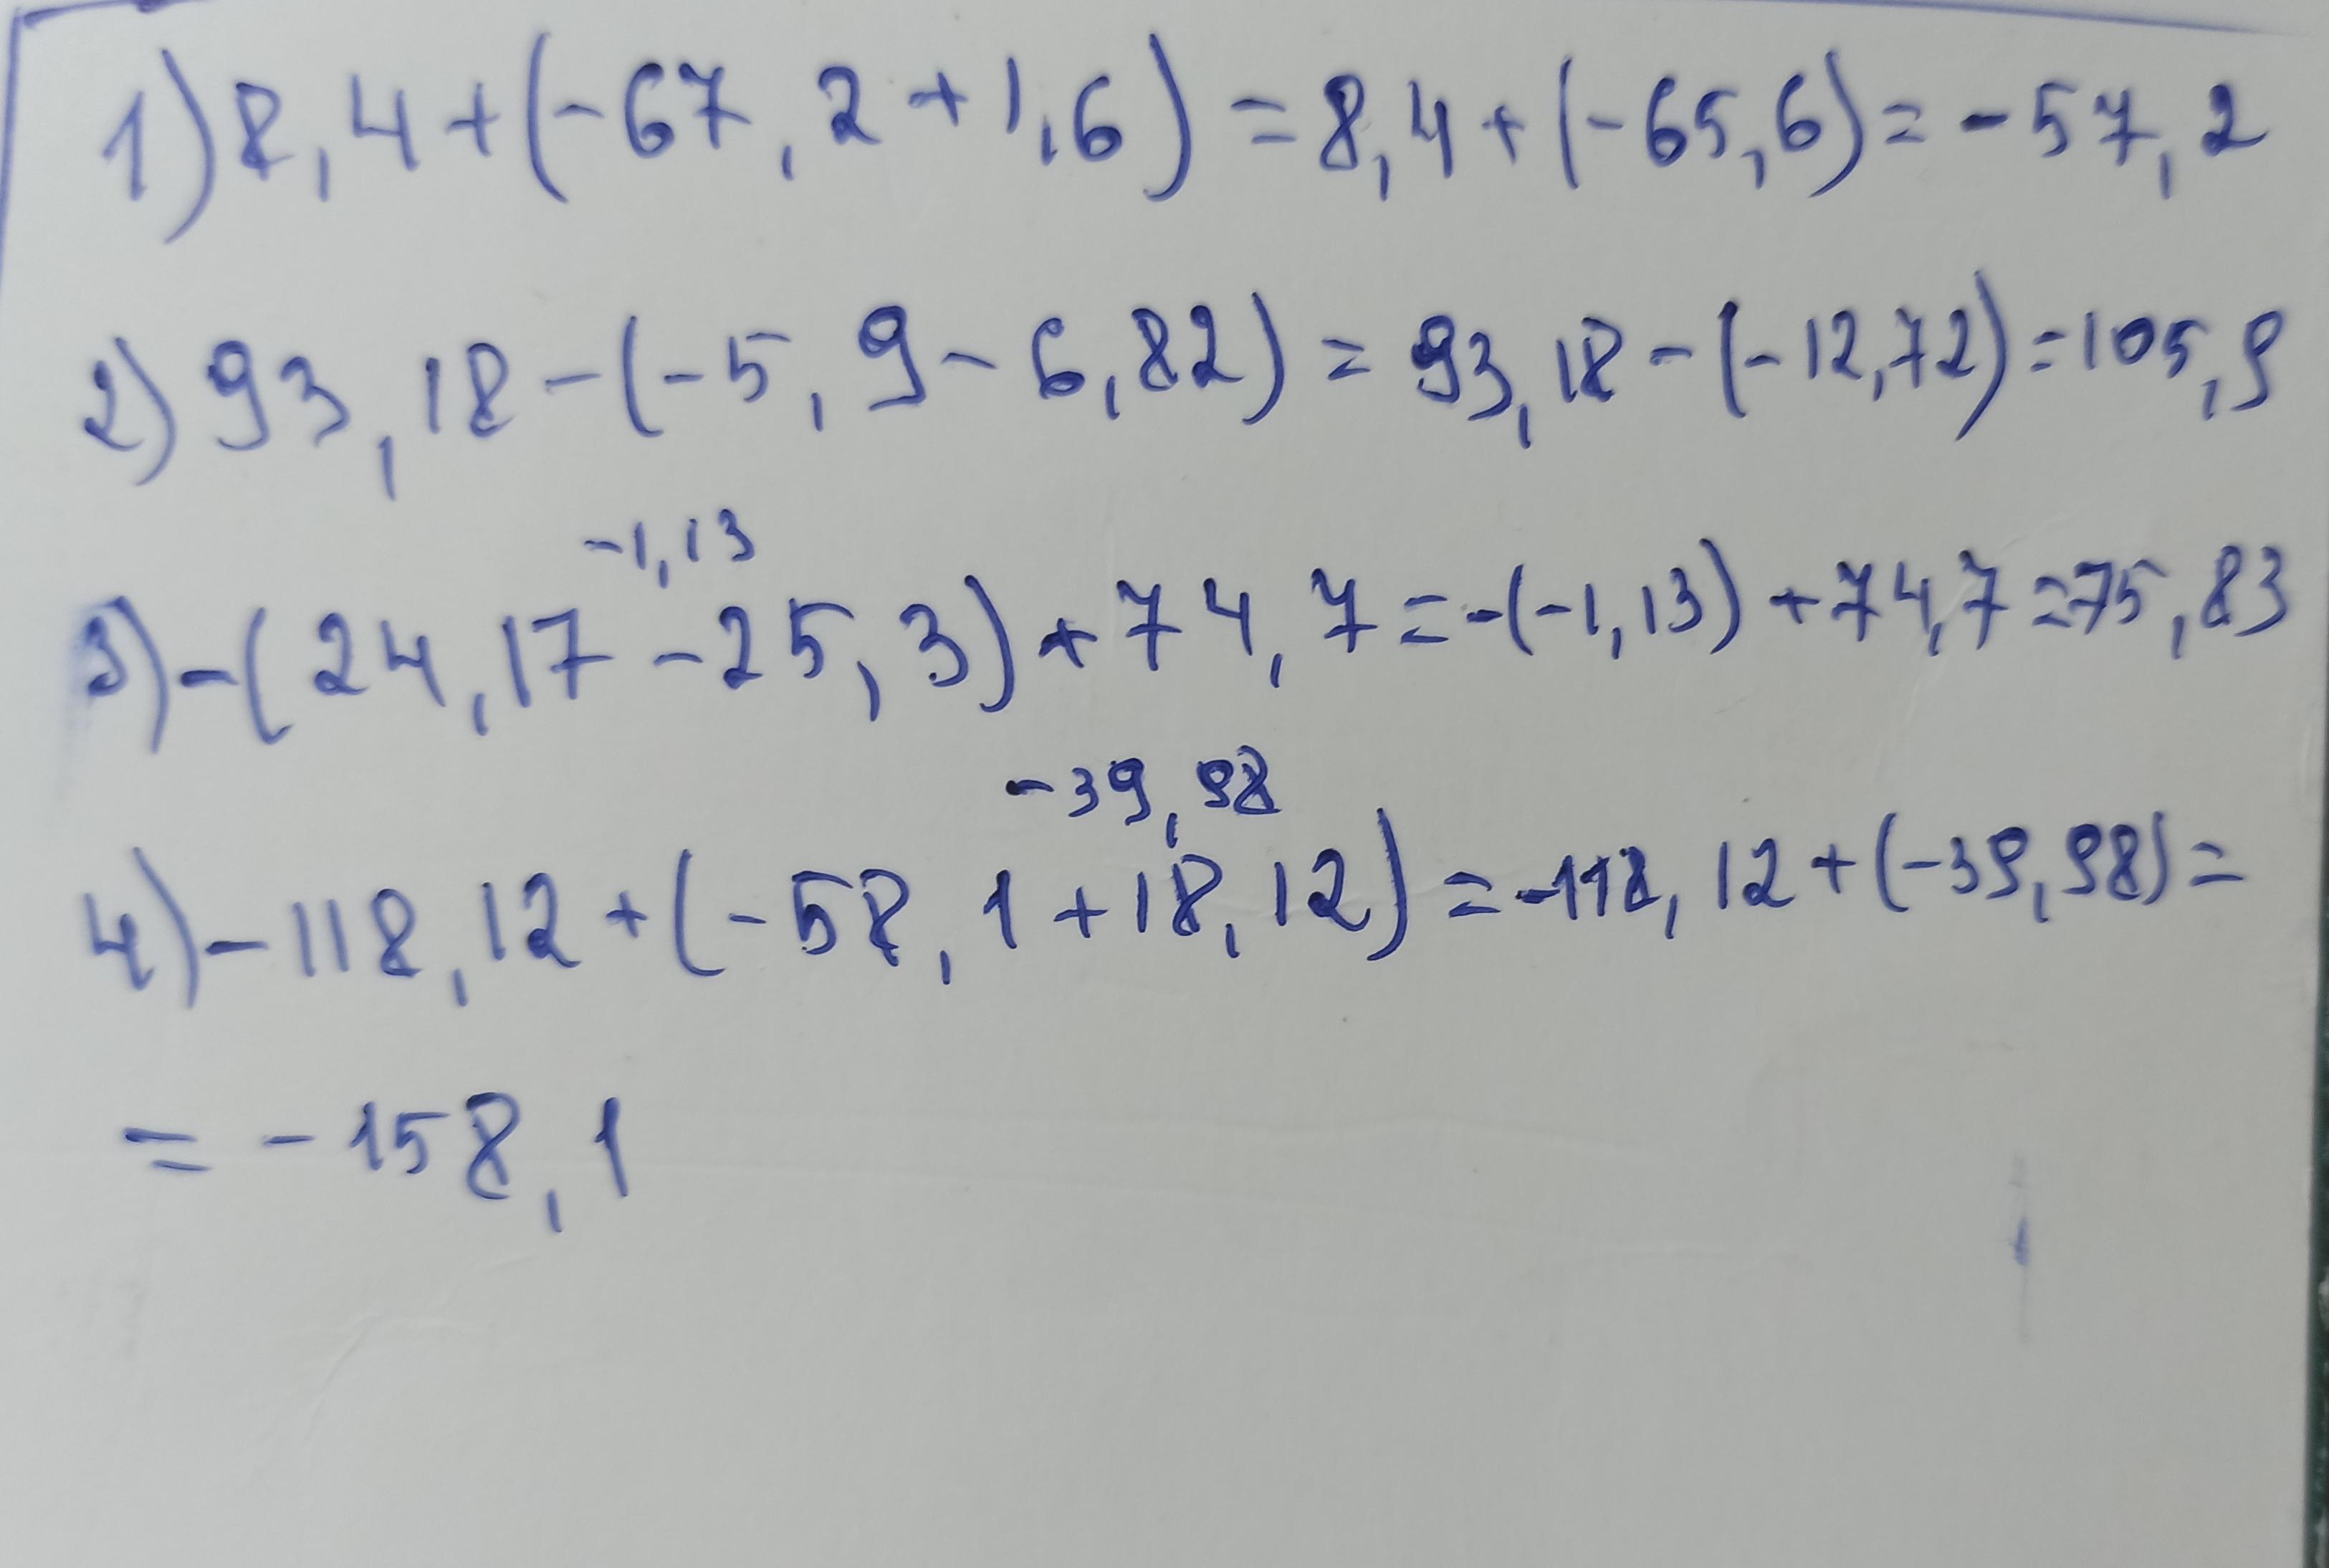 1) 8,4+(-67,2+1,6)=8,4+(-65,6)=-57,2
2) 93,18-(-5,9-6,82)=93,18-(-12,72)=105,9
-1,13
3) -(24,17-25,3)+74,7=-(-1,13)+74,7=75,83
-39,98
4) -118,12+(-58,1+18,12)=-118,12+(-39,98)=
=-158,1